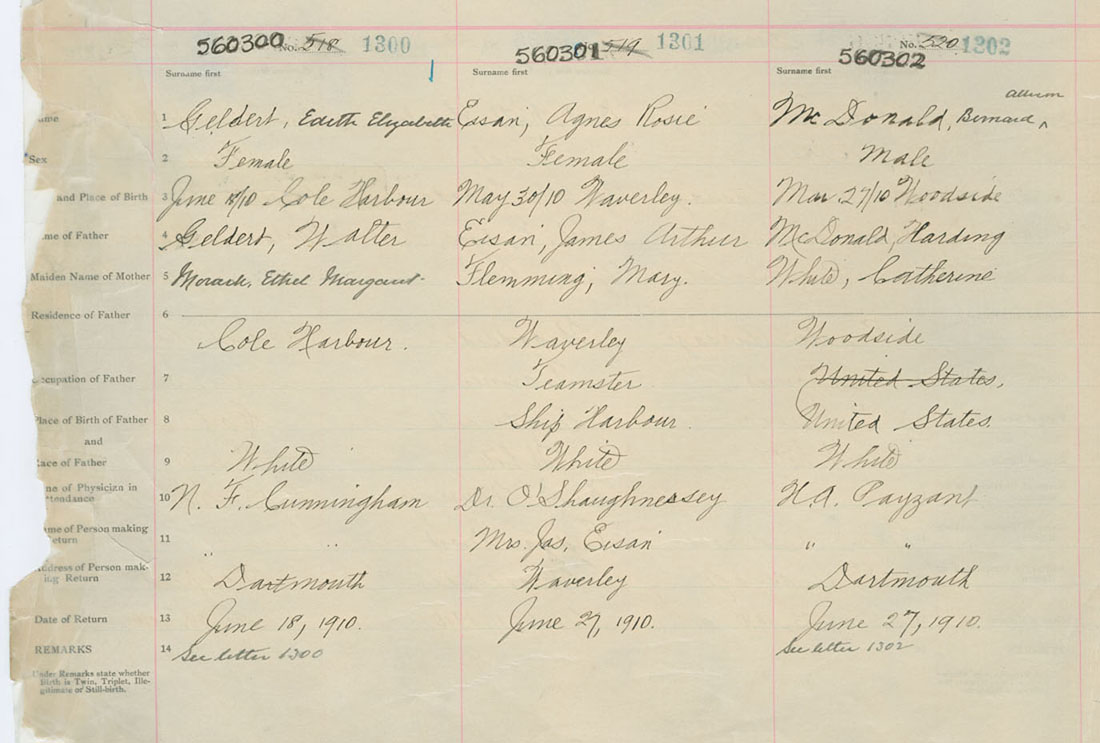 560300 No. 518 1300
560301 519 1301
No. 520 1302
560302
Surname first Surname first Surname first
ame 1 Geldert, Edith Elizabeth Essan, Agnes Rosie McDonald, Bernard ^ Allison
Sex 2 Female Female Male
and Place of Birth 3 June /10 Cole Harbour May 30/10 Waverley. Mar 27/10 Woodside
me of Father 4 Geldert, Walter Eisan, James Arthur McDonald, Harding
Maiden Name of Mother 5 Ethel Margaret. Flemming, Mary. White, Catherine
Residence of Father 6 Cole Harbour. Waverley Woodside
ccupation of Father 7 Teamster United States,
Place of Birth of Father 8 Ship Harbour. United States.
and
ace of Father 9 White White White
me of Physician in
ttendance 10 N. F. Cunningham Dr. O'Shaughnessey H.A. Payzant
ame of Person making
eturn 11 " " Mrs. Jas. Eisan " "
ddress of Person mak-
ing Return 12 Dartmouth Waverley Dartmouth
Date of Return 13 June 18, 1910. June 27, 1910. June 27, 1910.
REMARKS 14 See letter 1300 See letter 1302
Under Remarks state whether
Birth is Twin, Triplet, Ille-
gitimate or Still-birth.